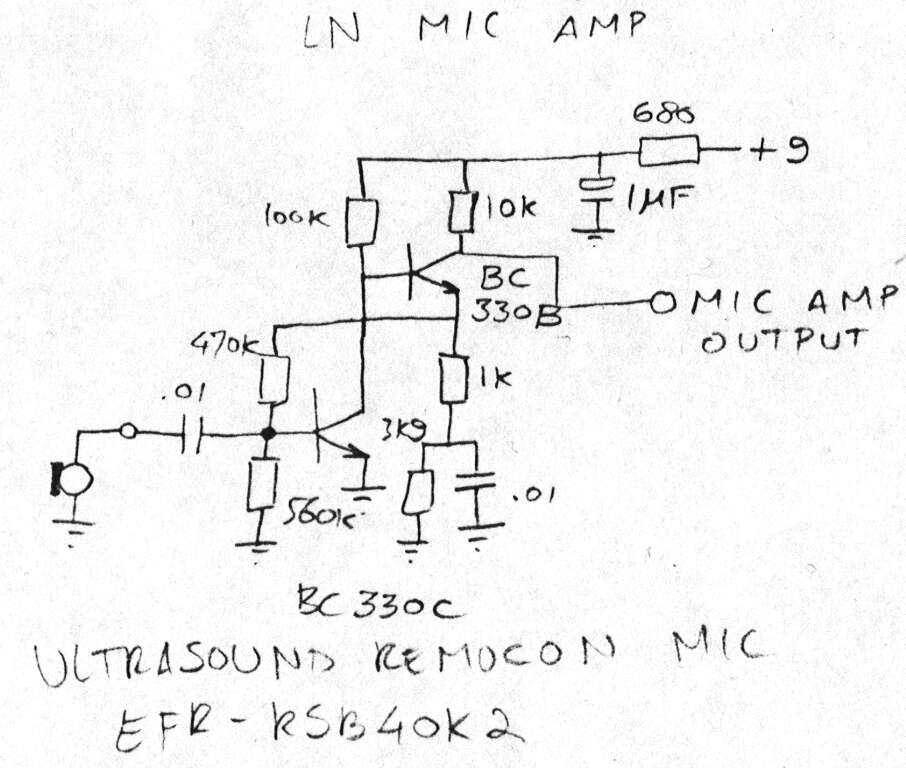 LN MIC AMP
680
+9
100K
10K
1MF
BC
330B
MIC AMP
OUTPUT
470K
1K
.01
3K9
560K
.01
BC 330C
ULTRASOUND REMOCON MIC
EFR-RSB40K2